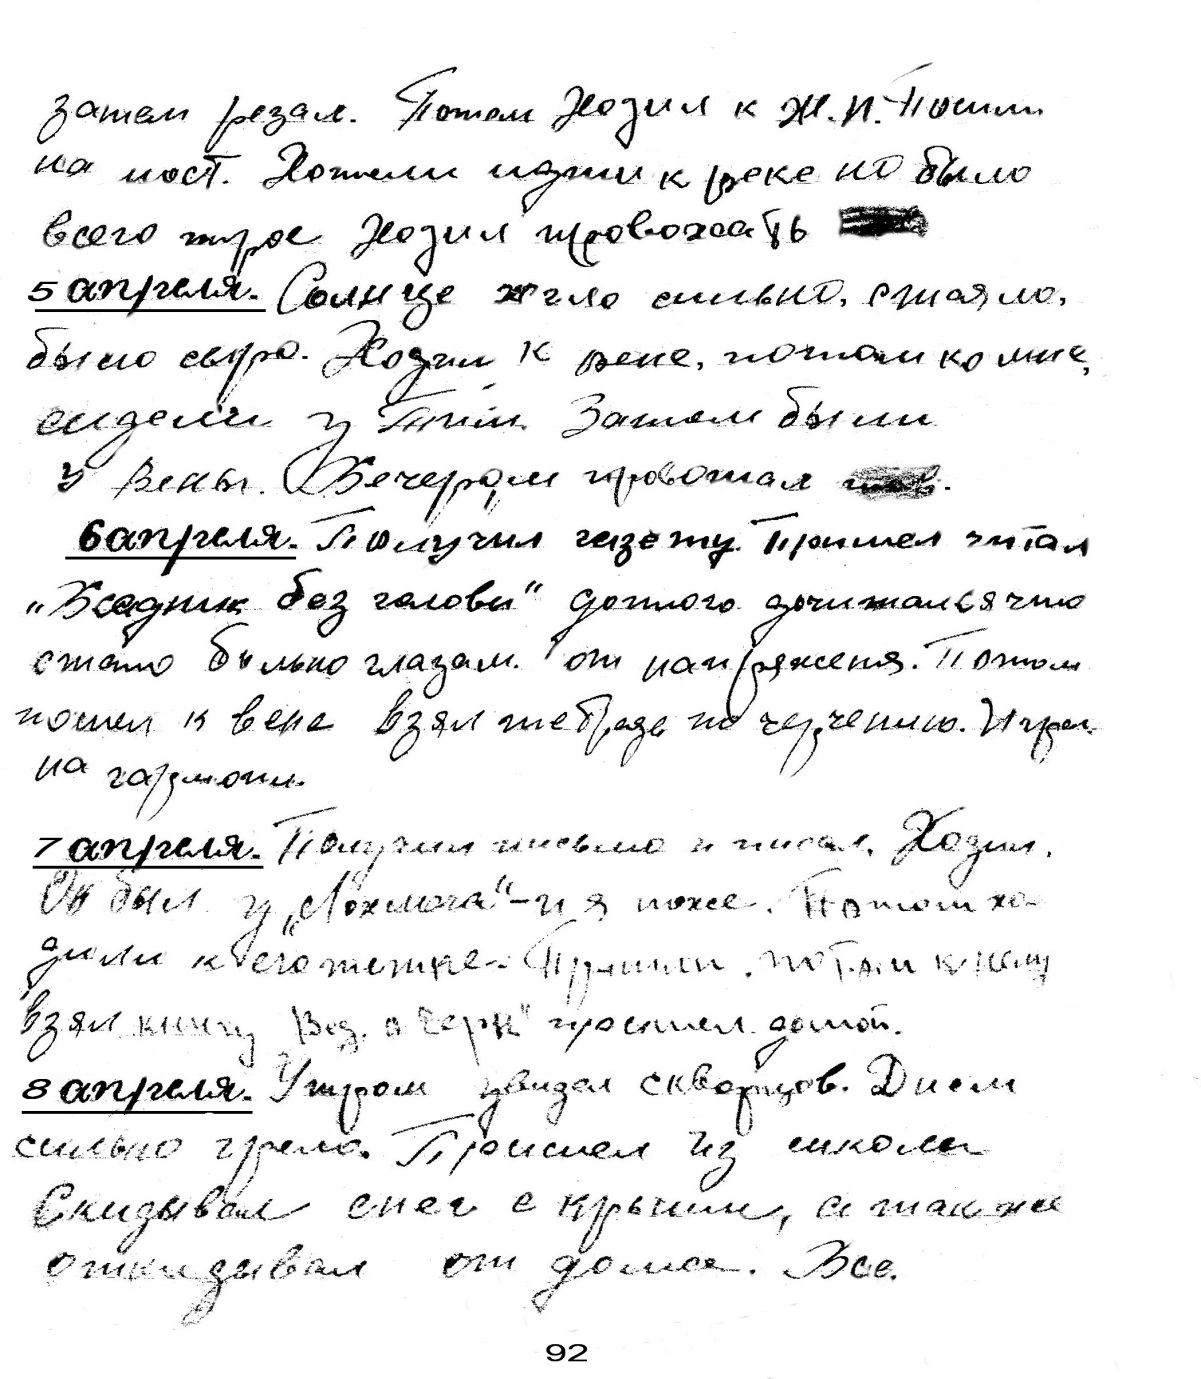 затем резал. Потом ходил к Ж.П. Пошли
на мост. Хотели идти к реке но было
всего трое ходил провожать
5 апреля. Солнце жгло сильно, стаяло,
было сыро. Ходил к вене, потом ко мне,
сидели у Затем были
у Вены. Вечером провожал
6 апреля. Получил газету. Пришел читал
„Всадник без головы“ дотого дочитался что
стало больно глазам. от напряженя. Потом
пошел к вене взял тетрадь по черчению. Играл
на гармони.
7 апреля. Получил письмо и писал. Ходил.
Он был у „Лохмача“ - и я тоже. Потом хо
дили к его тетке. Пришли, потом к нему
взял книгу пришел домой.
8 апреля. Утром увидел скворцов. Днем
сильно грело. Пришел из школы
Скидывал снег с крыши, а также
откидывал от дома. Все.
92